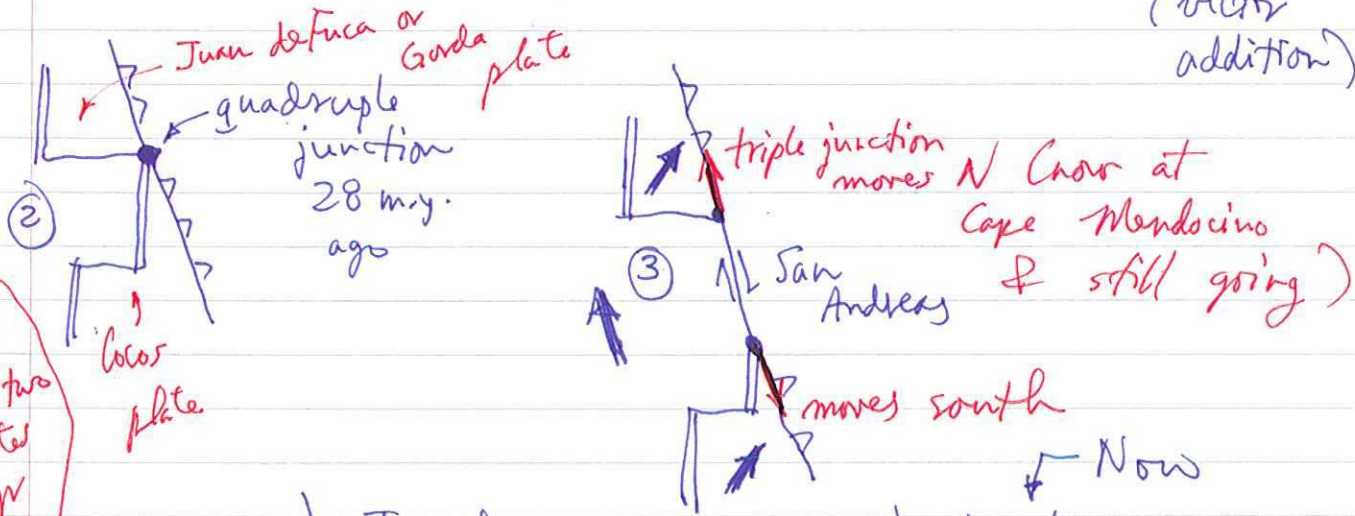 (vector
addition)
Juan de Fuca or
Gorda
plate
quadruple
junction
28 m.y.
ago
②
Cocos
plate
two
triple junction
moves N (now at
Cape Mendocino
& still going)
③
San
Andreas
moves south
Now